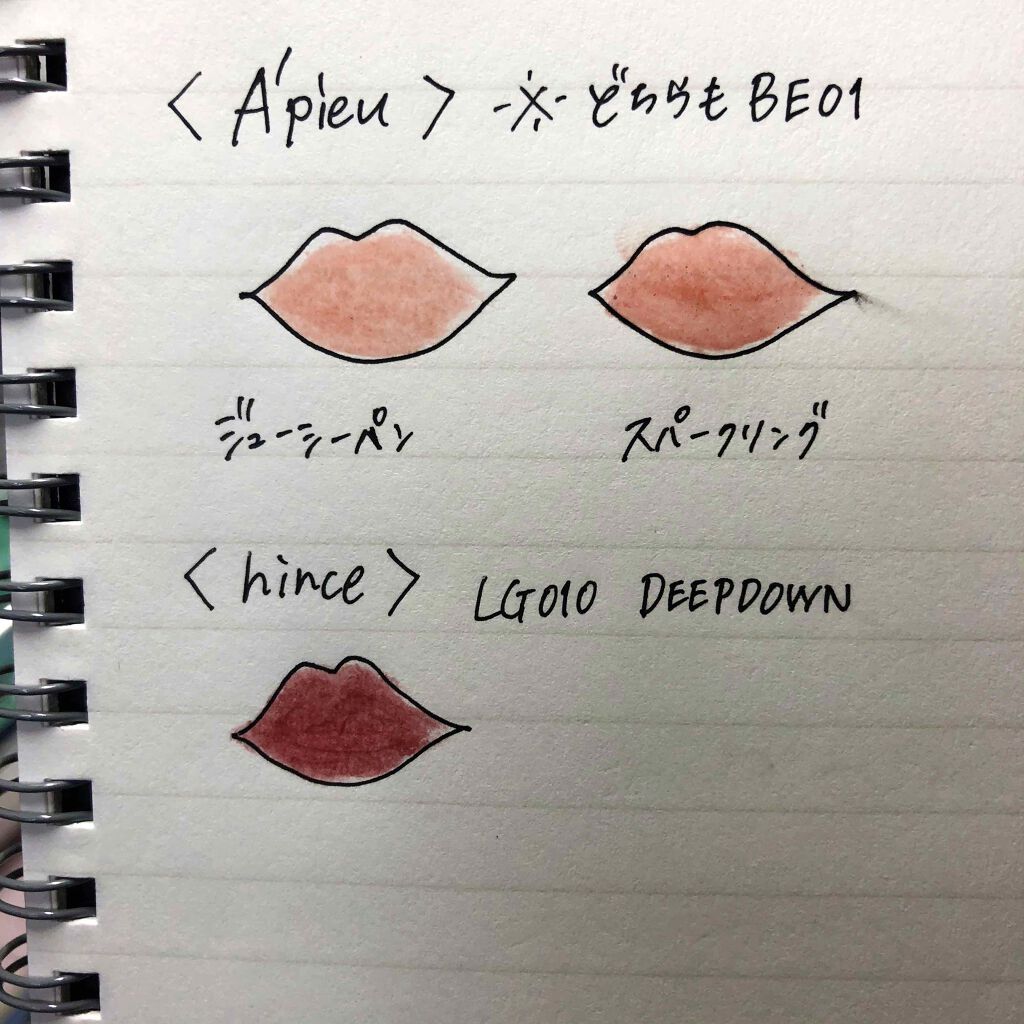 〈 A'pieu 〉 ※ どちらも BE01
ジューシーペン
スパークリング
〈 hince 〉 LG010 DEEPDOWN